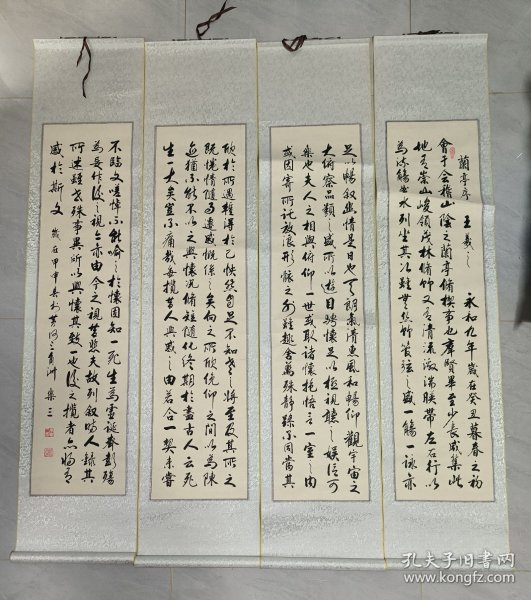 蘭亭序 王羲之 永和九年歲在癸丑暮春之初
會于會稽山陰之蘭亭脩禊事也群賢畢至少長咸集此
地有崇山峻領茂林脩竹又有清流激湍暎帶左右引以
為流觴曲水列坐其次雖無絲竹管弦之盛一觴一詠亦
足以暢叙幽情是日也天朗氣清惠風和暢仰觀宇宙之
大俯察品類之盛所以遊目騁懷足以極視聽之娛信可
樂也夫人之相與俯仰一世或取諸懷抱悟言一室之內
或因寄所託放浪形骸之外雖趣舍萬殊靜躁不同當其
欣於所遇輒得於己怏然自足不知老之將至及其所之
既惓情隨事遷感慨係之矣向之所欣俛仰之間以為陳
迹猶不能不以之興懷況脩短隨化終期於盡古人云死
生亦大矣豈不痛哉每攬昔人興感之由若合一契未嘗
不臨文嗟悼不能喻之於懷固知一死生為虛誕齊彭殤
為妄作後之視今亦由今之視昔悲夫故列叙時人錄其
所述雖世殊事異所以興懷其致一也後之攬者亦將有
感於斯文 歲在甲申春於黃河三角洲
孔夫子旧书网
www.kongfz.com